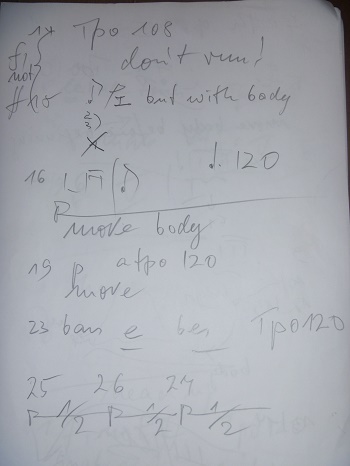 14 Tpo 108
don't run!
not
but with body
2)
3)
16 ♩. 120
p
move body
19 p a tpo 120
move
23 bars e bes Tpo 120
25 26 27
p 1/2 p 1/2 p 1/2